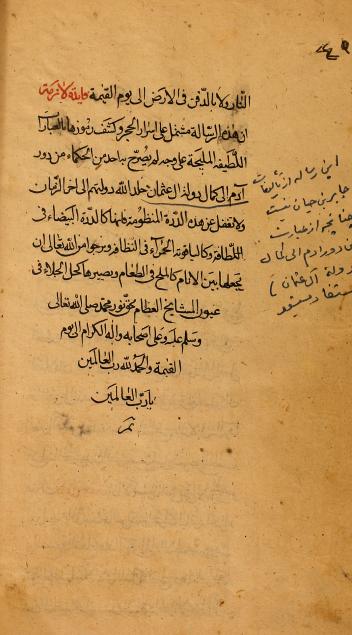 النار ولا بالدفن فى الارض الى يوم القيمة فايدة لازمة
ان هذه الرسالة مشتمل على اسرار الحجر وكشف رموزها بالعبارا
اللطيفة المليحة على وجه لم يصرح به احد من الحكماء من دور
آدم الى كمال دولة ال عثمان خلد الله دولتهم الى اخر الزمان
ولا تغفل عن هذه الدرة المنظومة فانها كالدرة البيضاء فى
اللطافة وكالياقوتة الحمراء فى النظافة ونرجوا من الله تعالى ان
يجعلها بين الانام كالملح فى الطعام ويصيرها كحل الجلاء فى
عيون المشايخ العظام بحق نور محمد صلى الله تعالى
وسلم عليه وعلى اصحابه واله الكرام الى يوم
القيمة والحمد لله رب العالمين
يا رب العالمين
تم
اين رساله از تاليفات
جابر بن حيان نيست
چنانچه از عبارت
دور ادم الى كمال
دولة آل عثمان)
مستفاد ميشود